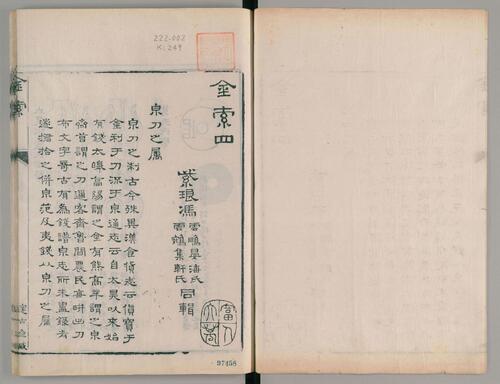 222-002
K:249
金索四
紫琅馮
雲鵬晏海氏
雲鵷集軒氏
同輯
泉刀之屬
泉刀之制古今殊異漢食貨志云貨寶于
金利于刀流于泉通志云自太昊以來始
有錢太皥高陽謂之金有熊高辛謂之泉
齊莒謂之刀邇客齊魯間農民畊出刀
布文字奇古有為錢譜泉志所未盡錄者
遂摭拾之併泉范及夷錢泉刀之屬
金索
97458